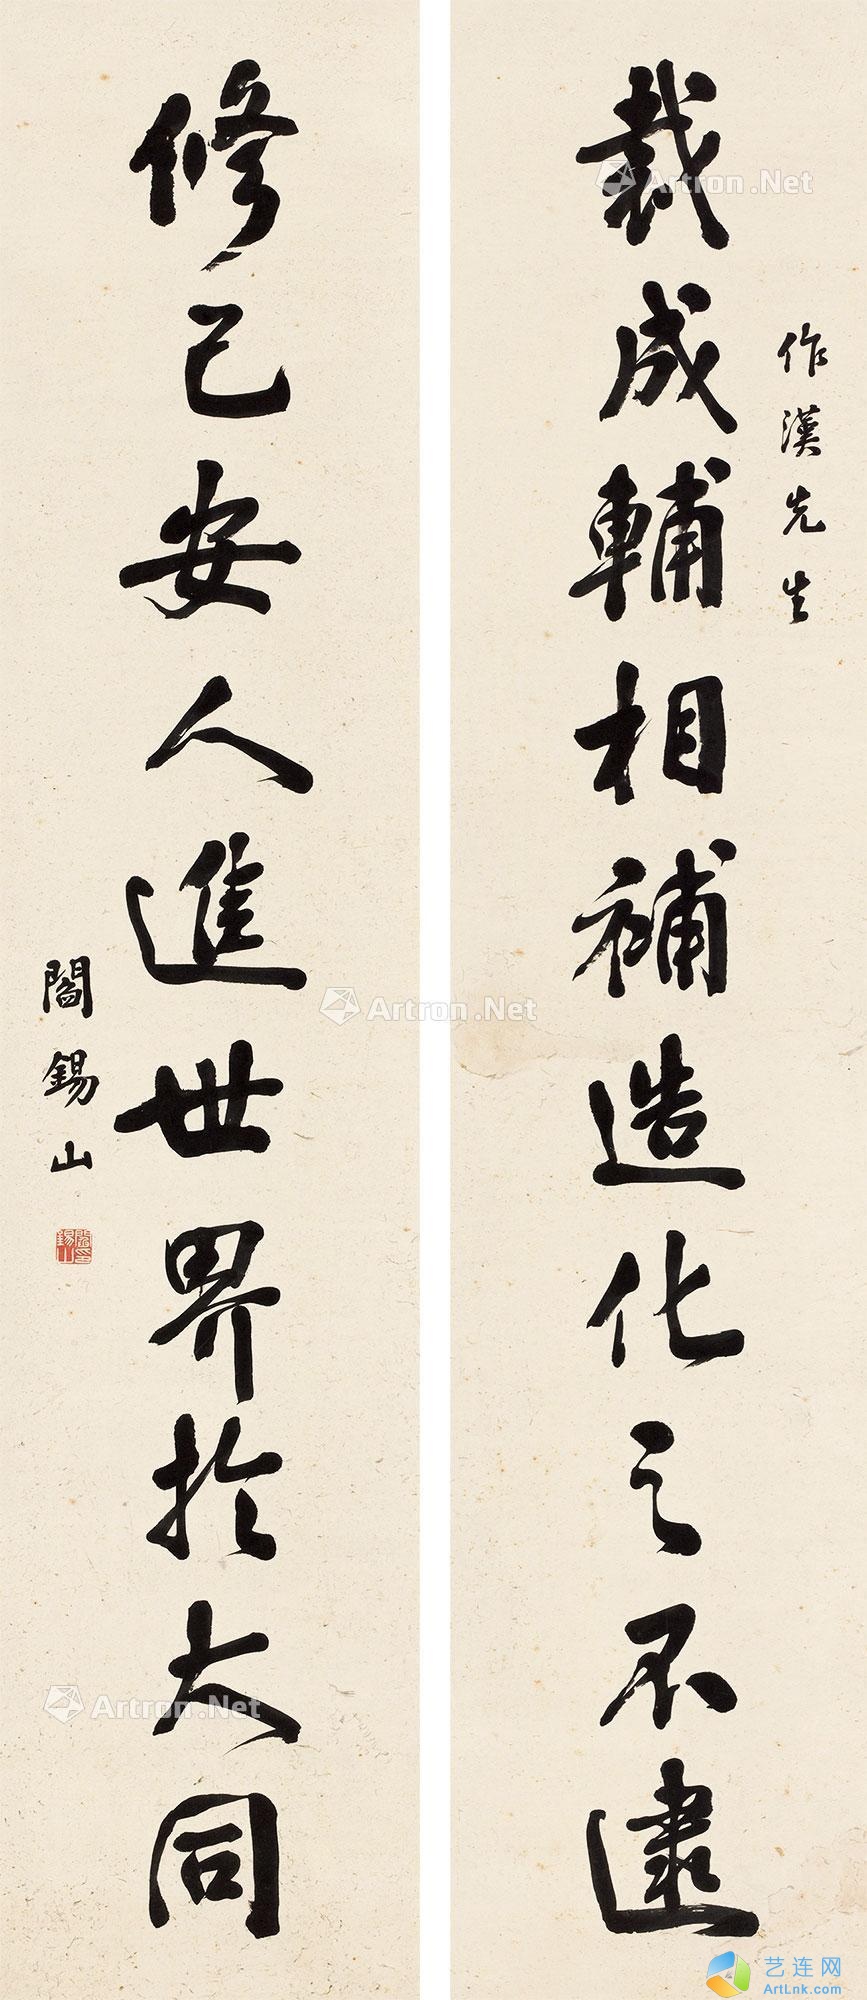 作漢先生
裁成輔相補造化之不逮
修己安人進世界於大同
閻錫山
閻錫山印
Artron.Net
Artron.Net
Artron.Net
艺连网
ArtLnk.com